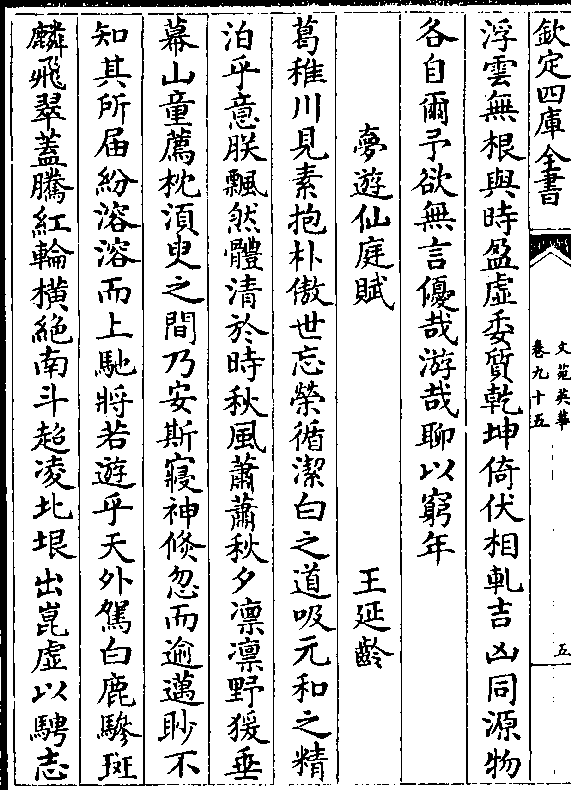 欽定四庫全書
文苑英華
卷九十五
五
浮雲無根與時盈虛委質乾坤倚伏相軋吉凶同源物
各自爾予欲無言優哉游哉聊以窮年
夢遊仙庭賦 王延齡
葛稚川見素抱朴傲世忘榮循潔白之道吸元和之精
泊乎意朕飄然體清於時秋風蕭蕭秋夕凛凛野猨垂
幕山童薦枕湏臾之間乃安斯寢神倐忽而逾邁眇不
知其所届紛溶溶而上馳將若遊乎天外駕白鹿驂斑
麟飛翠蓋騰紅輪橫絶南斗超凌北垠出崑虛以騁志